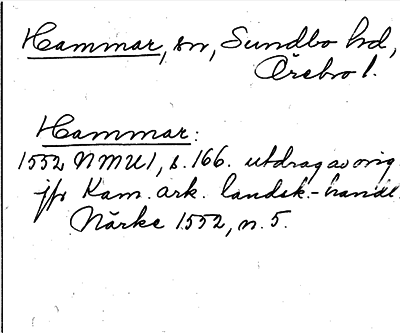 Hammar, sn, Sundbo hd,
Örebro l.
Hammar:
1552 NMU1, s. 166. utdrag av orig.
jfr Kam. ark. landsk.-handl.
Närke 1552, n. 5.